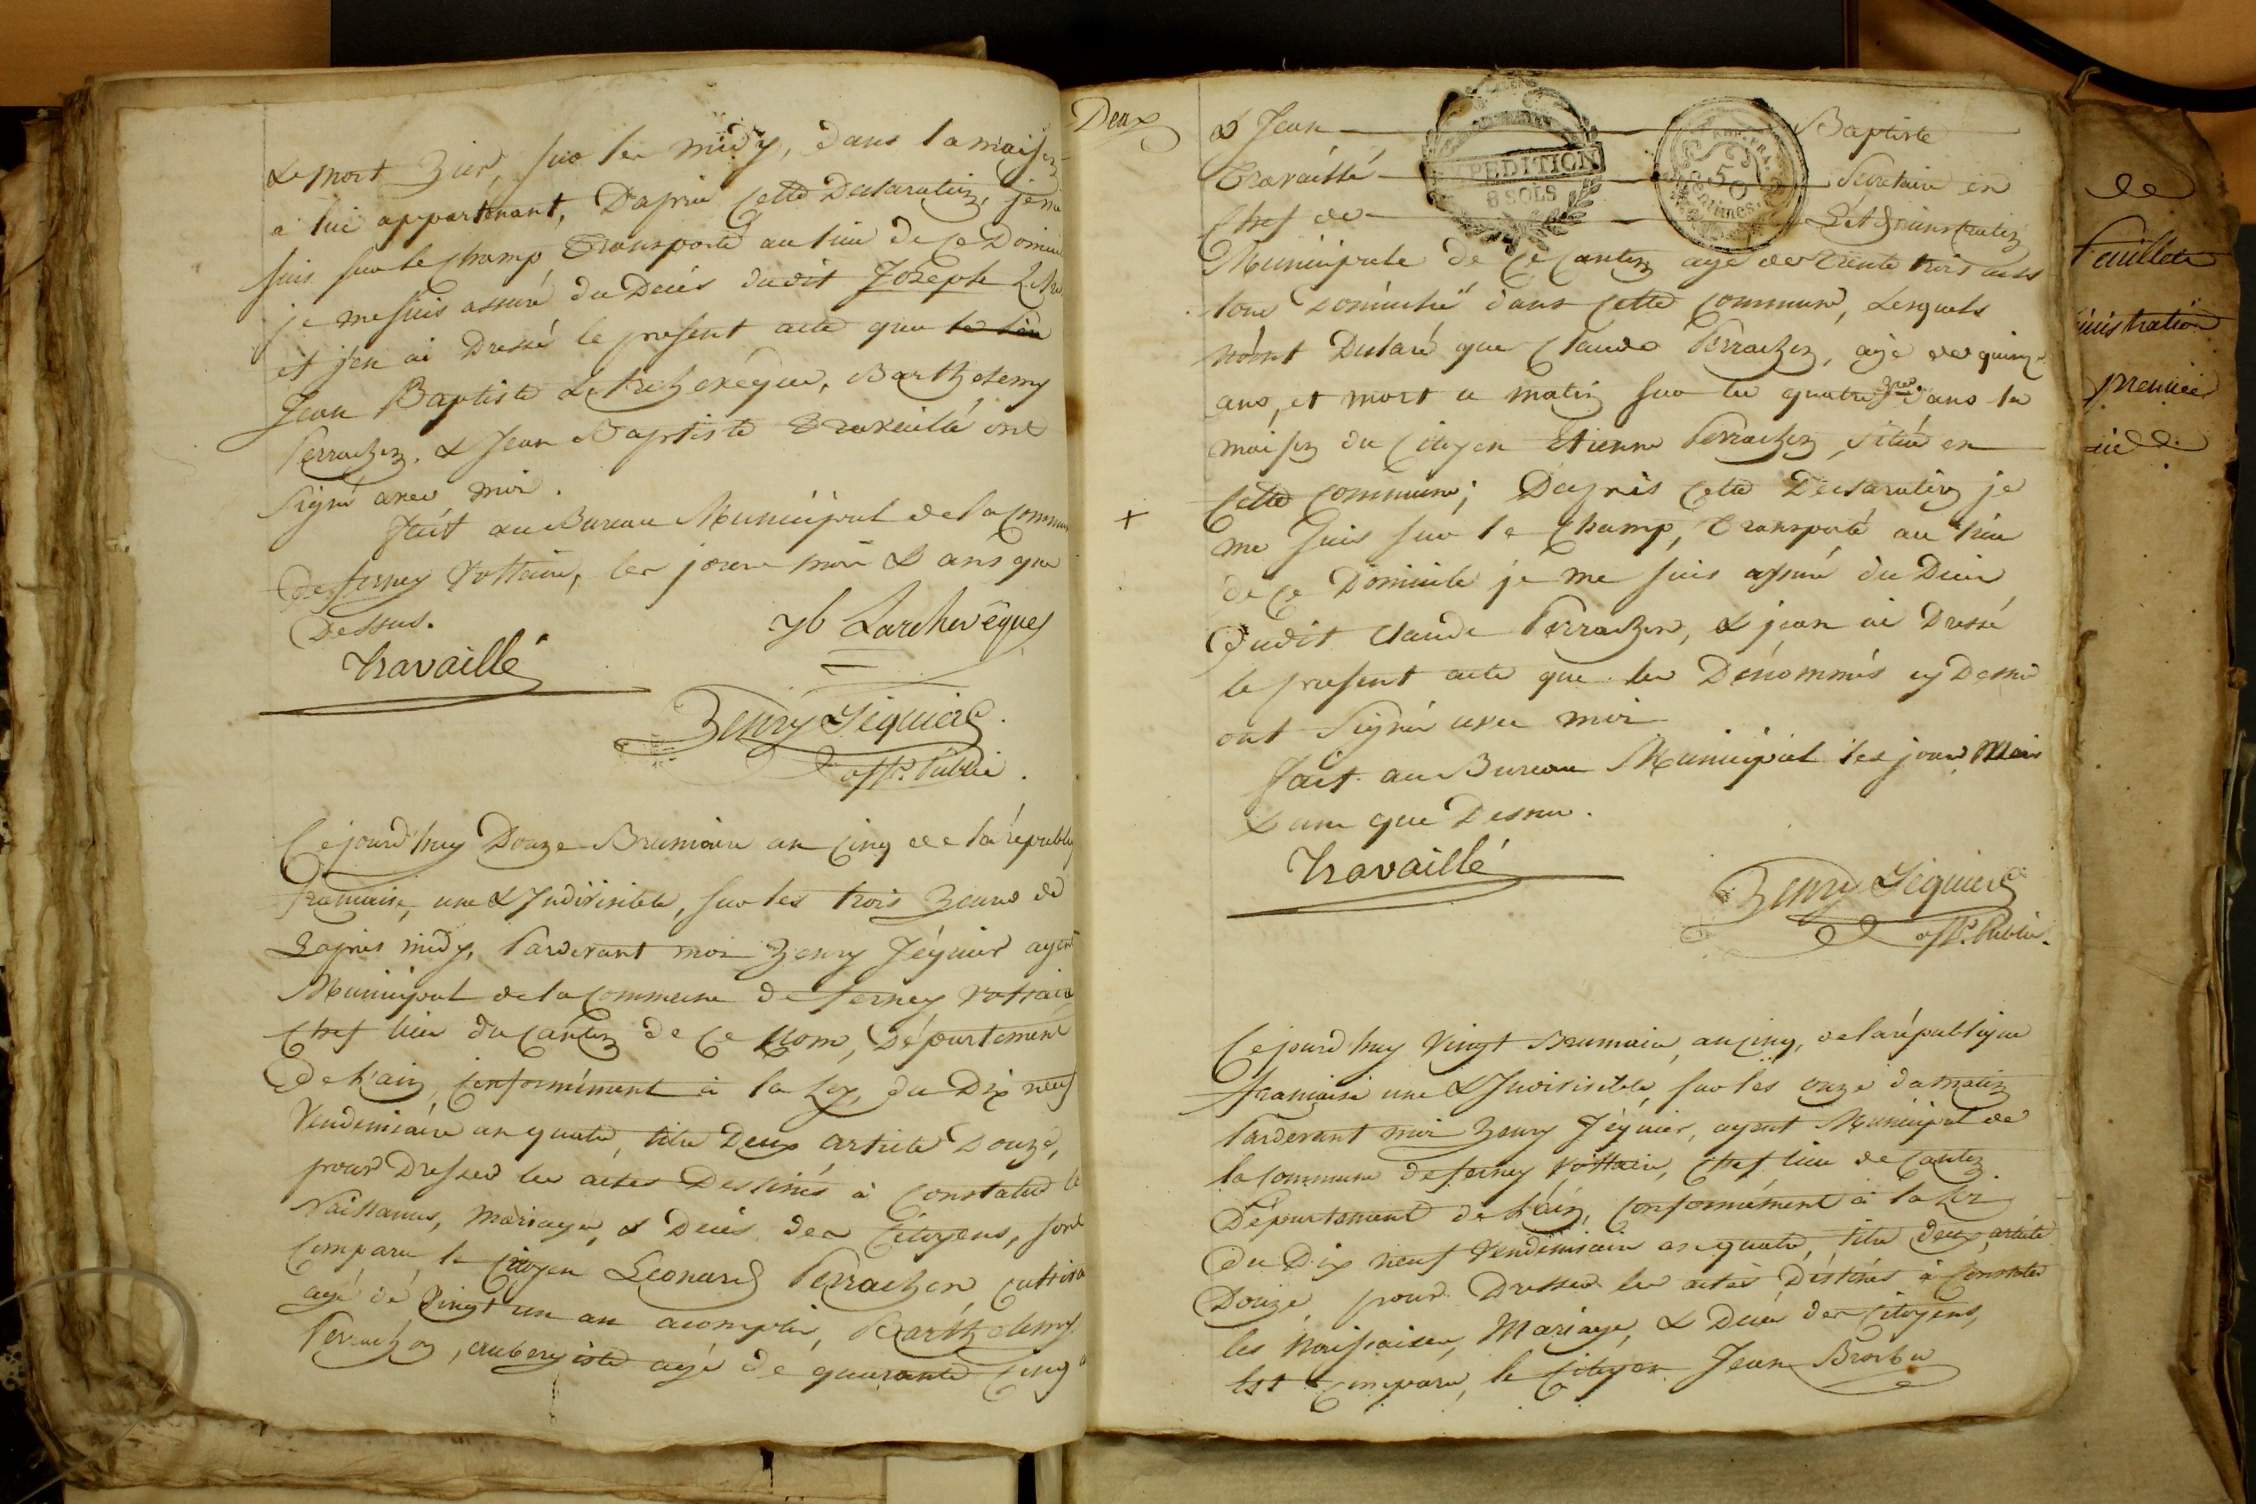 & mort hier, sur les midy, dans la maison
a lui appartenant, D'après Cette Declaration, je me
suis sur le Champ Transporté au lieu de Ce Domicile
je me suis assuré du Décès dudit Joseph
et j'en ai Dressé le present acte que
Jean Baptiste Larchevêque, Barthelemy
Perrachon, & Jean Baptiste Travaillé ont
Signé avec moi.
fait au Bureau Municipal de la Commune
de ferney Voltaire, les jour mois & ans que
Dessus.
Larchevêque
Travaillé
Henry Jéquier
off. Public.
Cejourd'huy Douze Brumaire an Cinq de la républiq
francaise, une & Indivisible, sur les trois heures de
L'après midy, Pardevant moi henry Jéquier agent
Municipal de la Commune de ferney Voltaire
Chef lieu du Canton de Ce Nom, Département
De L'ain, Conformément à la Loy, du Dix neuf
Vendemiaire an quatre, titre Deux article Douze,
pour Dresser les actes Destinés à Constater le
Naissances, Mariages, & Décès des Citoyens, sont
Comparu, le Citoyen Leonard Perrachon, Cultiva
agé de Vingt un an acomplis, Barthelemy
Perrachon, aubergiste agé de quarante Cinq a
Deux
& Jean Baptiste
Travaillé Secretaire en
Chef de L'Administration
EXPEDITION
8 SOLS
50
Centimes
Municipale de Ce Canton agé de trente trois ans
tous Domicilié dans Cette Commune, Lesquels
m'ont Declaré que Claude Perrachon, agé de quinze
ans, et mort ce matin sur les quatre hres dans la
maison du Citoyen Etienne Perrachon, située en
Cette Commune; D'après Cette Declaration je
+
me suis sur le Champ, Transporté au lieu
de Ce Domicile je me suis assuré du Décès
Dudit Claude Perrachon, & j'en ai Dressé
le present acte que les Dénommés cy Dessus
ont Signé avec moi
fait au Bureau Municipal les jour Mois
& an que Dessus.
Travaillé
Henry Jéquier
off. Public.
Cejourd'huy Vingt Brumaire, an Cinq, de la république
francaise une & Indivisible, sur les onze du matin
Pardevant moi henry Jéquier, agent Municipal de
la Commune de ferney Voltaire, Chef lieu de Canton
Département de L'ain, Conformément à la Loi
Du Dix neuf Vendemiaire an quatre, titre deux, article
Douze, pour Dresser les actes Déstinés à Constater
les Naissances, Mariages, & Décès des Citoyens,
Est Comparu, le Citoyen Jean
de
feuillets
inistration
premier